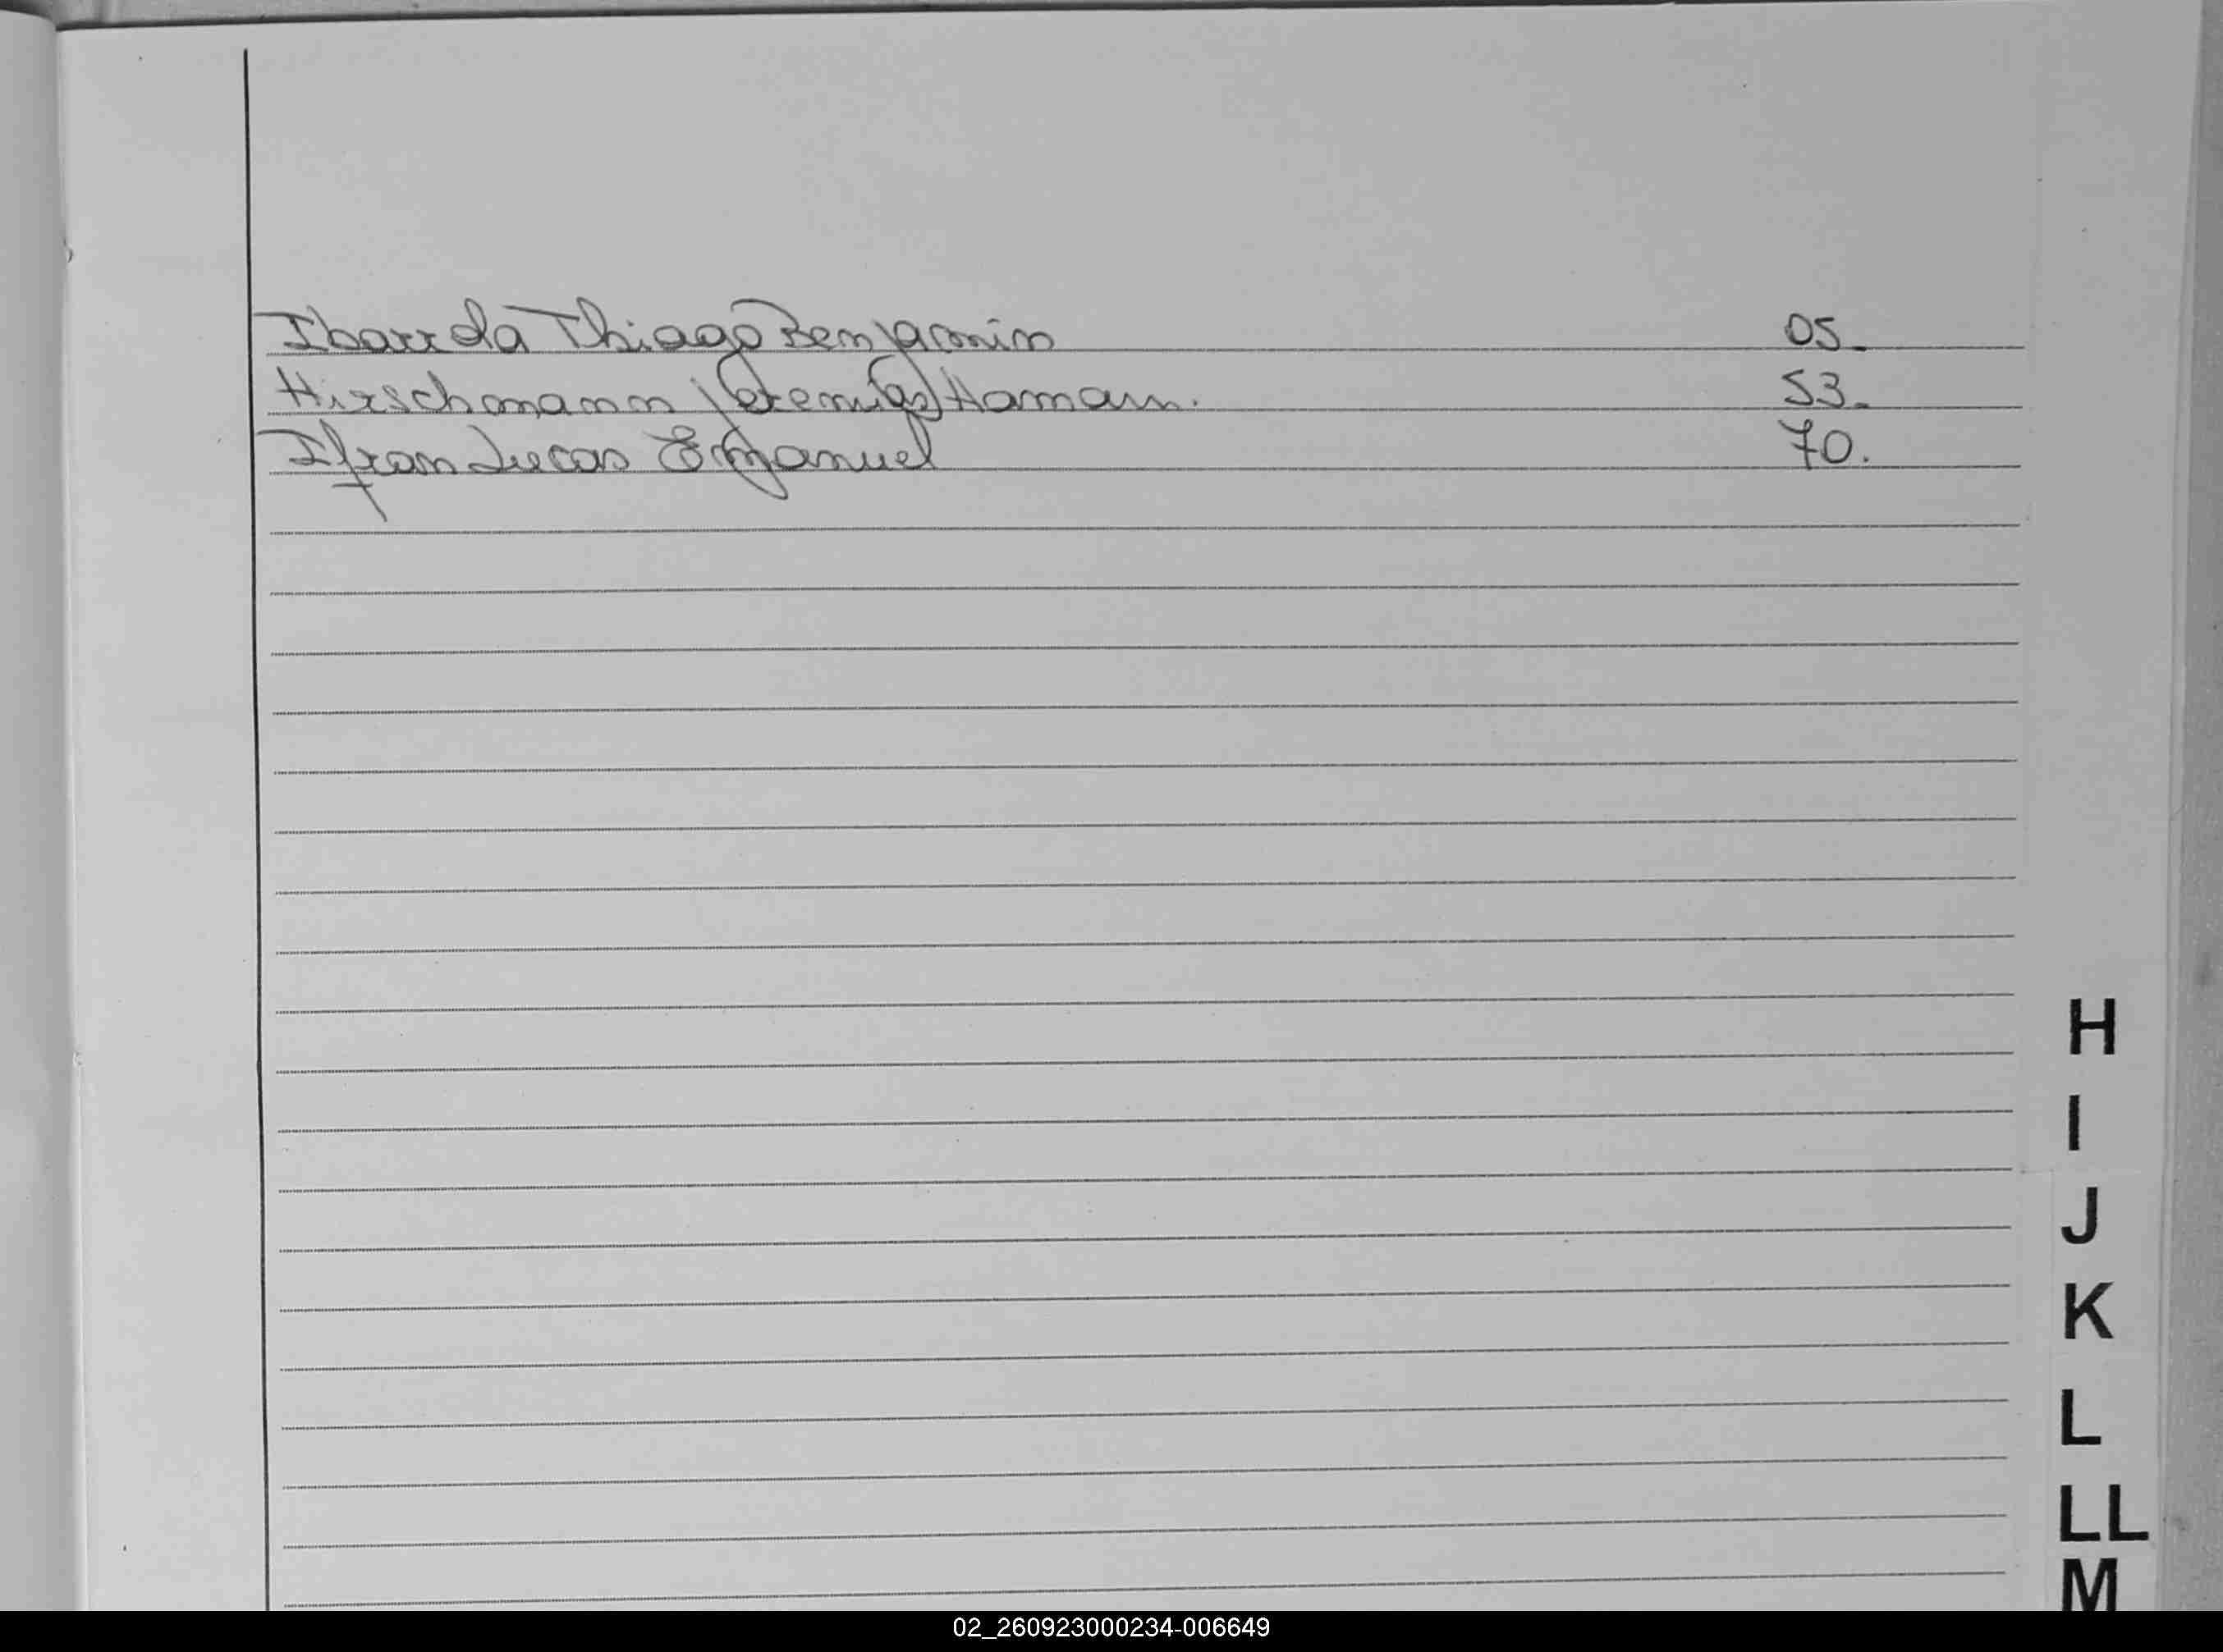 Ibarrola Thiago Benjamín 05.
Hirschmann Jeremías Hernan. 53.
Ifran Lucas Emanuel 70.
H
I
J
K
L
LL
M
02_260923000234-006649